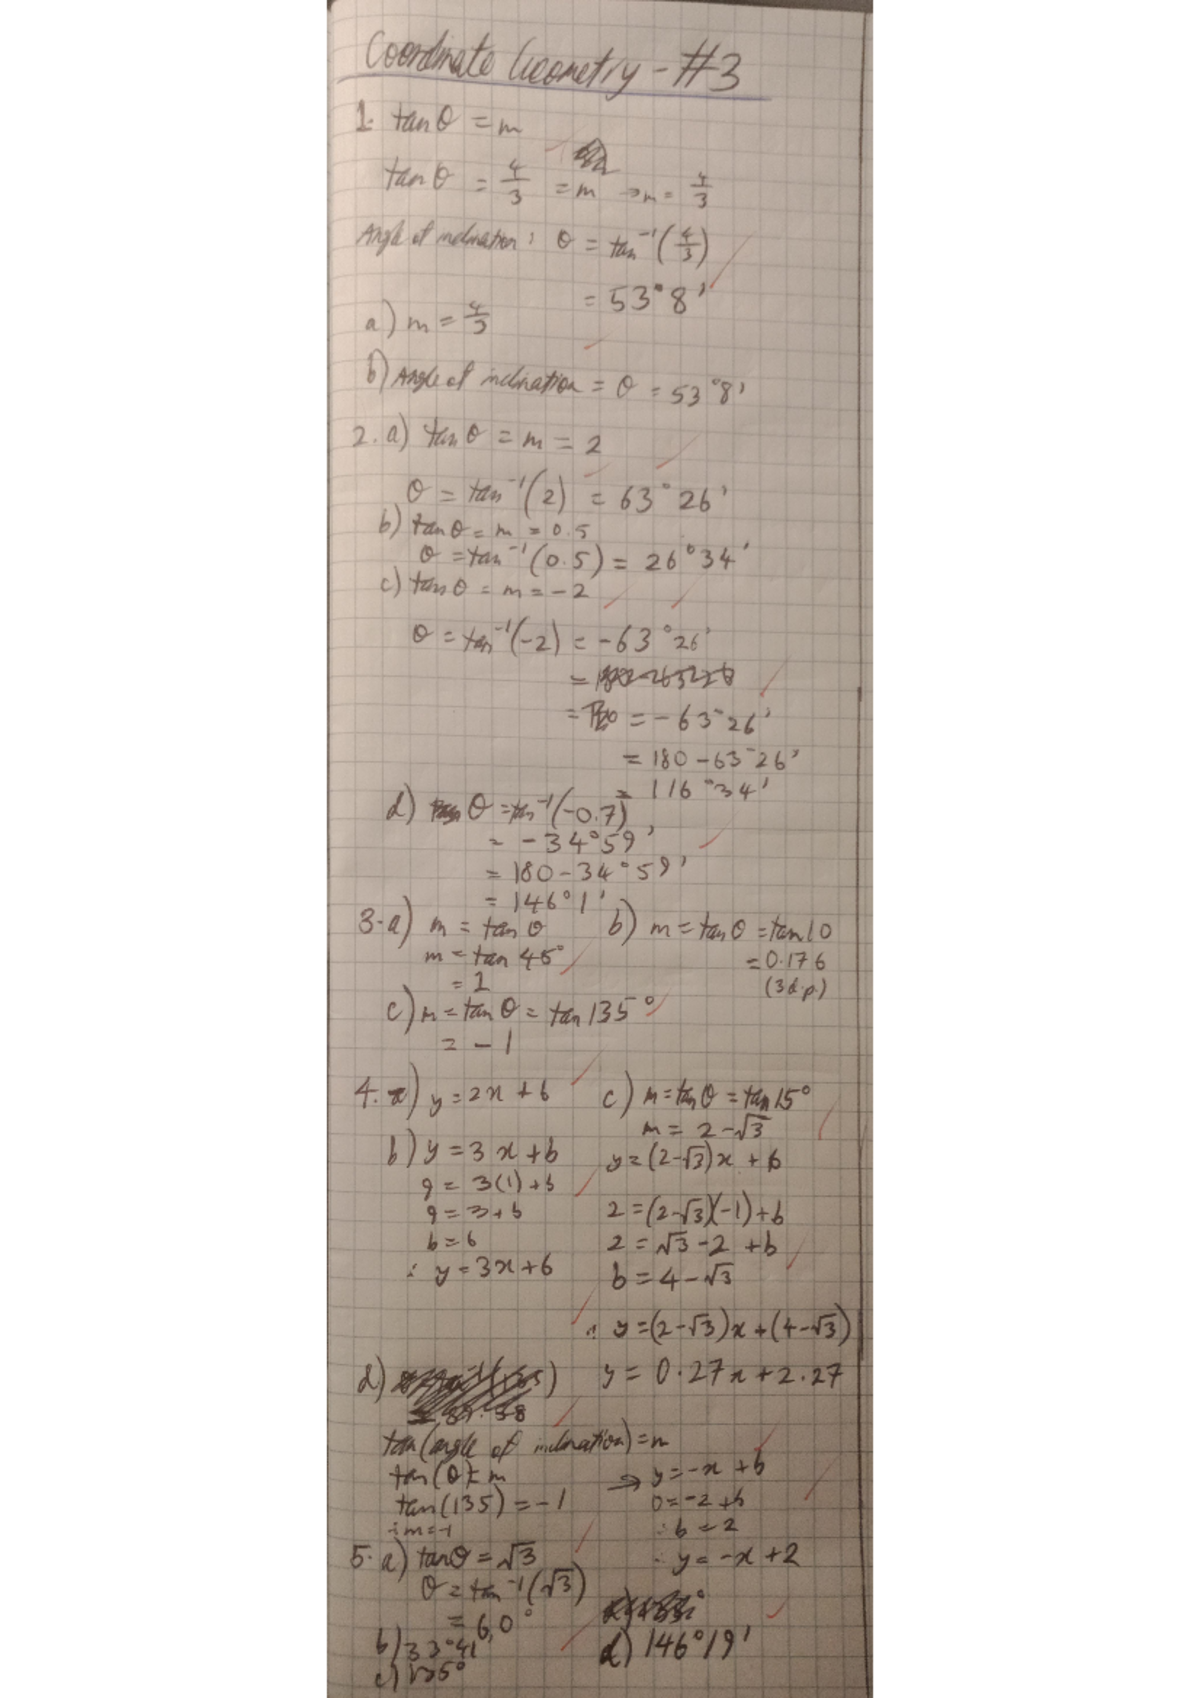 Coordinate Geometry - #3
1. tan θ = m
tan θ = 4/3 = m → m = 4/3
Angle of inclination: θ = tan⁻¹(4/3)
= 53°8'
a) m = 4/3
b) Angle of inclination = θ = 53°8'
2. a) tan θ = m = 2
θ = tan⁻¹(2) = 63°26'
b) tan θ = m = 0.5
θ = tan⁻¹(0.5) = 26°34'
c) tan θ = m = -2
θ = tan⁻¹(-2) = -63°26'
= -63°26'
= 180 - 63°26'
= 116°34'
d) θ = tan⁻¹(-0.7)
= -34°59'
= 180 - 34°59'
= 146°1'
3. a) m = tan θ
m = tan 45°
= 1
b) m = tan θ = tan 10
= 0.176
(3 d.p.)
c) m = tan θ = tan 135°
= -1
4. a) y = 2x + 6
b) y = 3x + b
9 = 3(1) + b
9 = 3 + b
b = 6
∴ y = 3x + 6
c) m = tan θ = tan 15°
m = 2 - √3
y = (2-√3)x + b
2 = (2-√3)(-1) + b
2 = √3 - 2 + b
b = 4 - √3
∴ y = (2-√3)x + (4-√3)
y = 0.27x + 2.27
d)
tan(angle of inclination) = m
tan(θ) = m
tan(135) = -1
∴ m = -1
→ y = -x + b
0 = -2 + b
∴ b = 2
∴ y = -x + 2
5. a) tan θ = √3
θ = tan⁻¹(√3)
= 60°
b) 33°41'
c) 135°
d) 146°19'